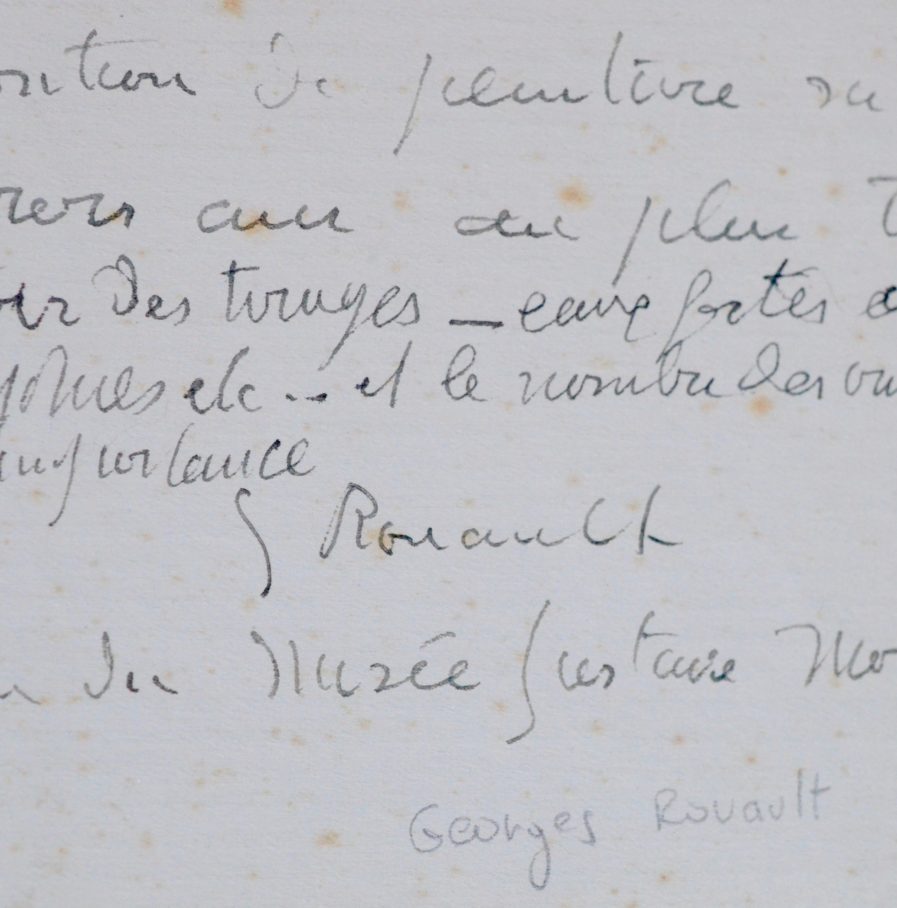 osition de peinture su
trois ans au plus t
oir des tirages — eaux fortes
phies etc... et le nombre des
importance
G Rouault
du Musée Gustave Mo
Georges Rouault